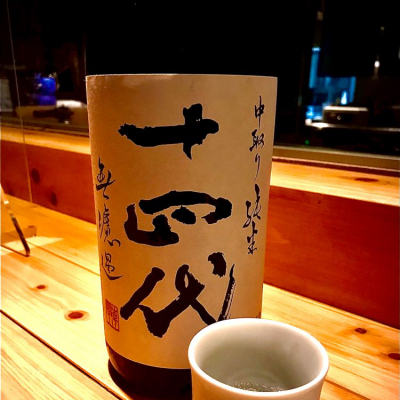 中取り純米
十四代
無濾過